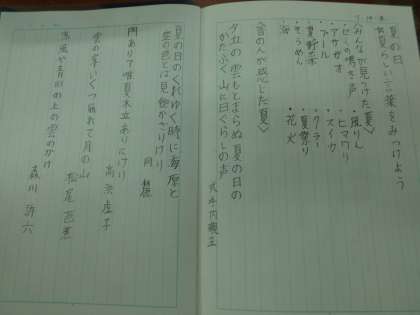 夏の日
夏らしい言葉をみつけよう
〈みんなが見つけた夏〉
・セミの鳴き声
・風りん
・アサガオ
・ヒマワリ
・アサリ
・スイカ
・夏野菜
・クーラー
・そうめん
・夏祭り
・海
・花火
〈昔の人が感じた夏〉
夕立の雲もとまらぬ夏の日の
かたぶく山に日ぐらしの声
式子内親王
夏の日のくれゆく時に海原と
空の色とは見飽かざりけり
門ありて唯夏木立ありにけり
高浜虚子
雲の峯いくつ崩れて月の山
松尾芭蕉
涼風や青田の上の雲のかげ
森川許六